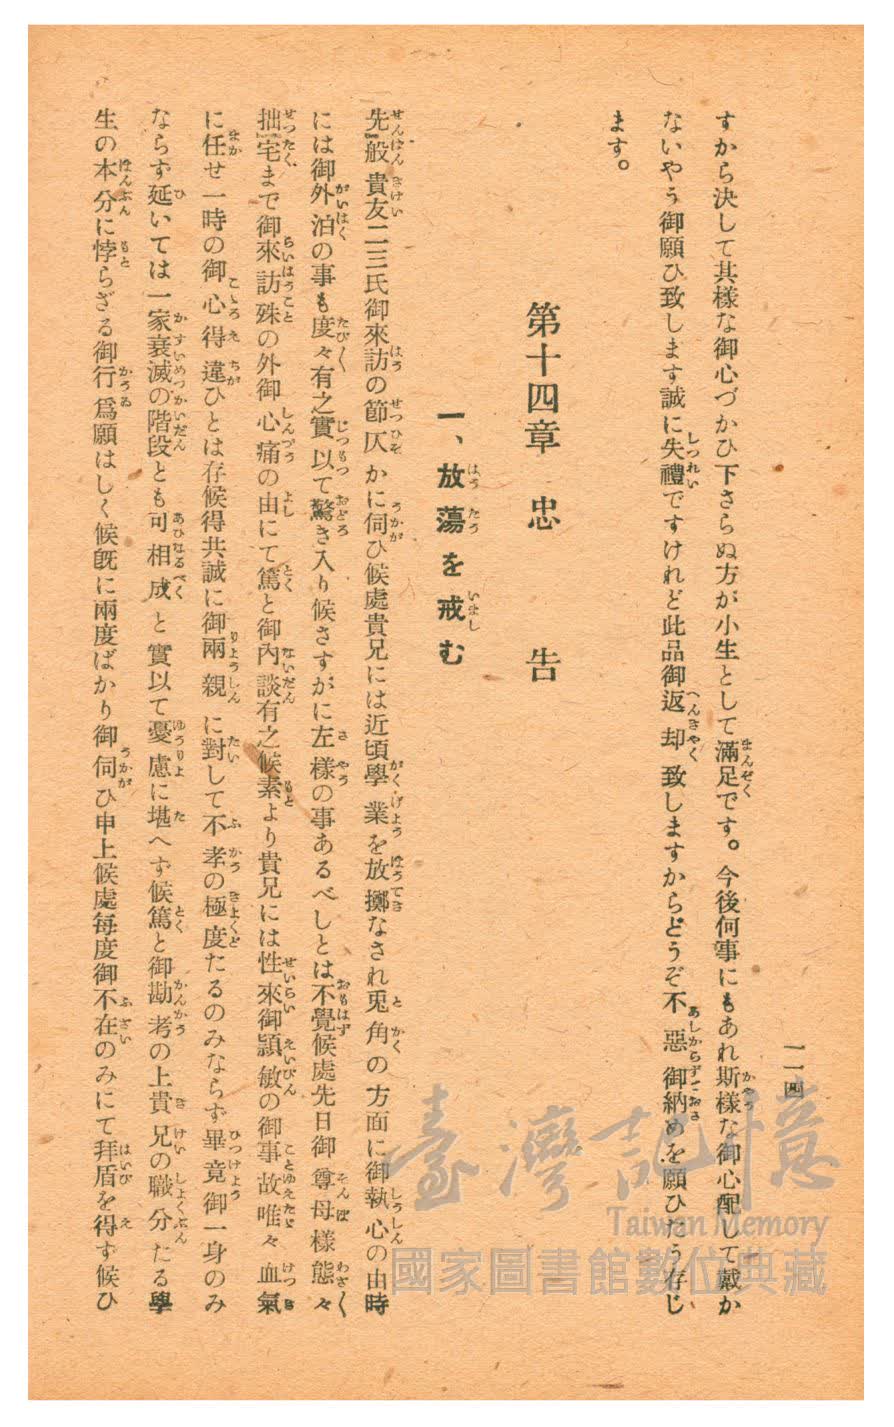 一一四
すから決して其樣な御心づかひ下さらぬ方が小生として滿足です。今後何事にもあれ斯樣な御心配して戴か
ないやう御願ひ致します誠に失禮ですけれど此品御返却致しますからどうぞ不惡御納めを願ひたう存じ
ます。
第十四章 忠告
一、放蕩を戒む
先般貴友二三氏御來訪の節仄かに伺ひ候處貴兄には近頃學業を放擲なされ兎角の方面に御執心の由時
には御外泊の事も度々有之實以て驚き入り候さすがに左樣の事あるべしとは不覺候處先日御尊母樣態々
拙宅まで御來訪殊の外御心痛の由にて篤と御內談有之候素より貴兄には性來御頴敏の御事故唯々血氣
に任せ一時の御心得違ひとは存候得共誠に御兩親に對して不孝の極度たるのみならず畢竟御一身のみ
ならず延いては一家衰滅の階段とも可相成と實以て憂慮に堪へず候篤と御勘考の上貴兄の職分たる學
生の本分に悖らざる御行爲願はしく候旣に兩度ばかり御伺ひ申上候處每度御不在のみにて拜眉を得ず候ひ
臺灣記憶
Taiwan Memory
國家圖書館數位典藏